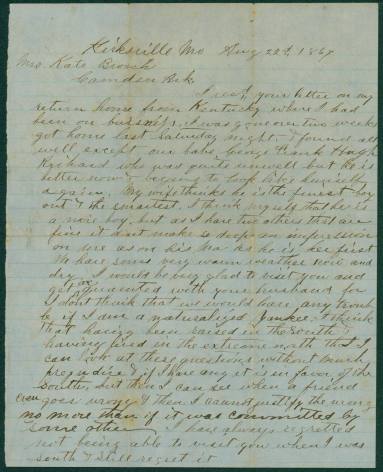 Kirksville Mo Aug 22d, 1867
Mrs. Kate Bronch
Camden Ark.
I recd your letter on my
return home from Kentucky where I had
been on business, I was gone over two weeks
got home last Saturday night & found all
well except our babe George Frank Hough
Richard who was quite unwell but he is
better now & begins to look like himself
again. My wife thinks he is the finest boy
out & the smartest. I think myself that he is
a nice boy, but as I have two others that are
fine it dont make so deep an impression
on me as on his Ma as he is her first
We have some very warm weather now and
dry. I would be very glad to visit you and
get acquainted with your husband for
I dont think that we would have any troub
le if I am a naturalized Yankee. I think
that having been raised in the South &
having lived in the extreme north that I
can look at these questions without much
prejudice & if I have any it is in favor of the
South, but then I can see when a friend
even goes wrong & then I cannot justify the wrong
no more than if it was committed by
some other I have always regretted
not being able to visit you when I was
south & still regret it